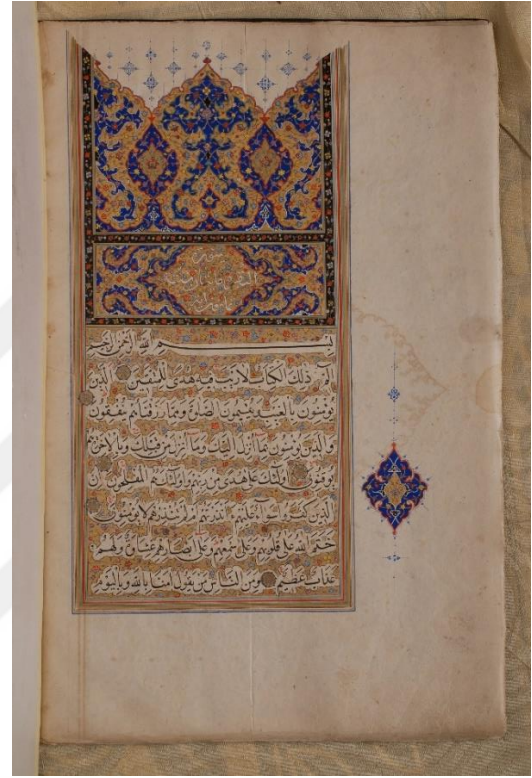 سورة
البقرة مائتان
بسم الله الرحمن الرحيم
الم ذلك الكتاب لا ريب فيه هدى للمتقين الذين
يؤمنون بالغيب ويقيمون الصلوة ومما رزقناهم ينفقون
والذين يؤمنون بما أنزل إليك وما أنزل من قبلك وبالاخرة هم
يوقنون اولئك على هدى من ربهم واولئك هم المفلحون ان
الذين كفروا سواء عليهم ءانذرتهم ام لم تنذرهم لا يؤمنون
ختم الله على قلوبهم وعلى سمعهم وعلى ابصارهم غشاوة ولهم
عذاب عظيم ومن الناس من يقول امنا بالله وباليوم